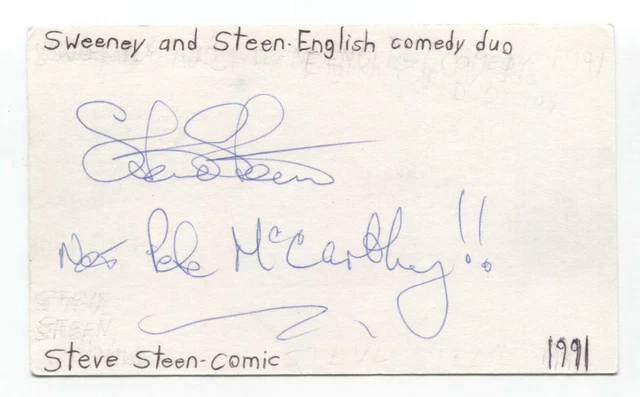 Sweeney and Steen-English comedy duo
Steve Steen
Not Pete McCarthy!!
STEVE
STEEN
Steve Steen-comic
1991